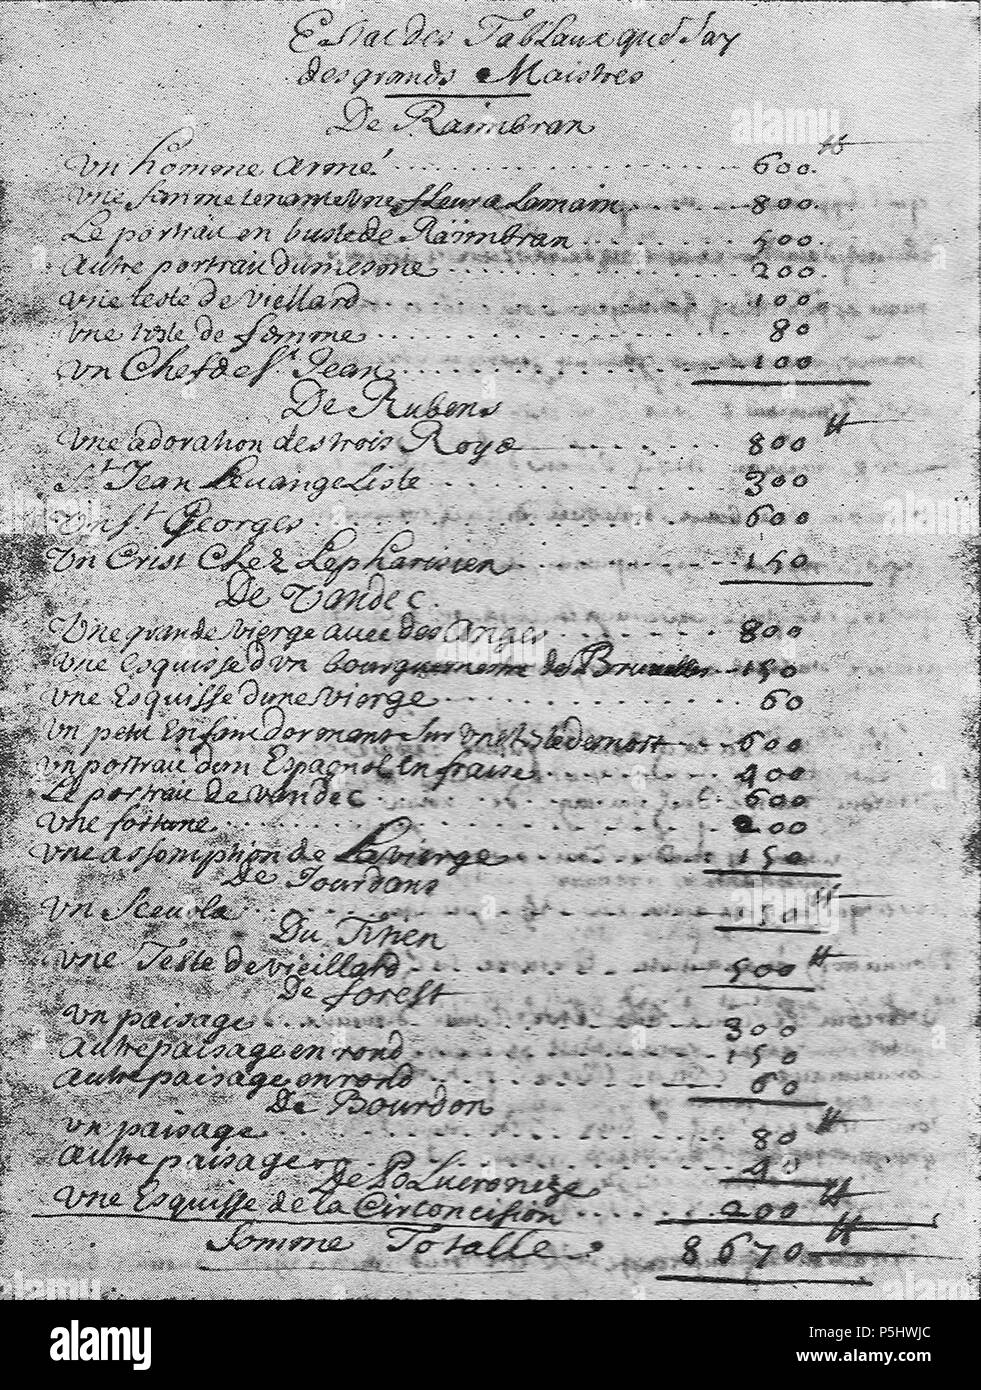 Estat des Tableaux que J'ay
des grands Maistres
De Raimbran
vn homme armé 600 ₶
vne femme tenante vne fleur a Lamain 800
Le portrau en buste de Raimbran 500
autre portrau dumesme 200
vne teste de viellard 100
vne teste de femme 80
vn Chef de St Jean 100
De Rubens
vne adoration des trois Roys 800 ₶
St Jean Leuangeliste 300
vn St Georges 600
vn Crist Chez Lepharisien 150
De Vandec
vne grande vierge auec des Anges 800
vne Esquisse d'vn bourguemestre de Bruxelles 150
vne Esquisse dune vierge 60
vn petit Enfant dormant sur vne teste de mort 600
vn portrau dun Espagnol en fraise 400
Le portrau de vandec 600
vne fortune 200
vne assomption de La vierge 150
De Jourdans
vn Sceuola 150 ₶
Du Titien
vne Teste de vieillard 500 ₶
De forest
vn paisage 300
autre paisage en rond 150
autre paisage en rond 60
De Bourdon
vn paisage 80 ₶
autre paisage 40
De Polueroneze
vne Esquisse de la Circoncision 200 ₶
Somme Totalle 8670 ₶
alamy
alamy
Image ID: P5HWJC
www.alamy.com